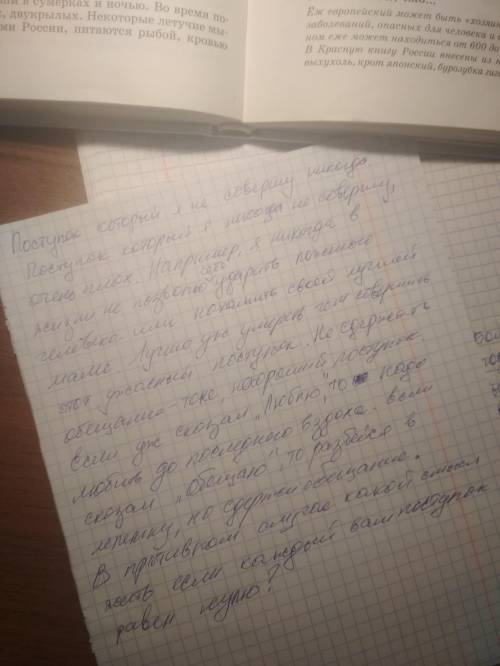 ши в сумерках и ночью. Во время по-
х, двукрылых. Некоторые летучие мы-
ми России, питаются рыбой, кровью
Еж европейский может быть «хозяи
заболеваний, опасных для человека и
ном еже может находиться от 600 до
В Красную книгу России внесены из н
выхухоль, крот японский, бурозубка гиг
Поступок который я не совершу никогда
Поступок который я никогда не совершу,
очень плох. Например, я никогда в
жизни не позволю себе ударить пожилого
человека или нахамить своей лучшей
маме. Лучше уж умереть чем совершить
этот ужасный поступок. Не сдержать
обещание – тоже, нехороший поступок.
Если уж сказал "Люблю", то надо
любить до последнего вздоха. Если
сказал "Обещаю", то разбейся в
лепешку, но сдержи обещание.
В противном случае какой смысл
жить если каждый ваш поступок
равен нулю?